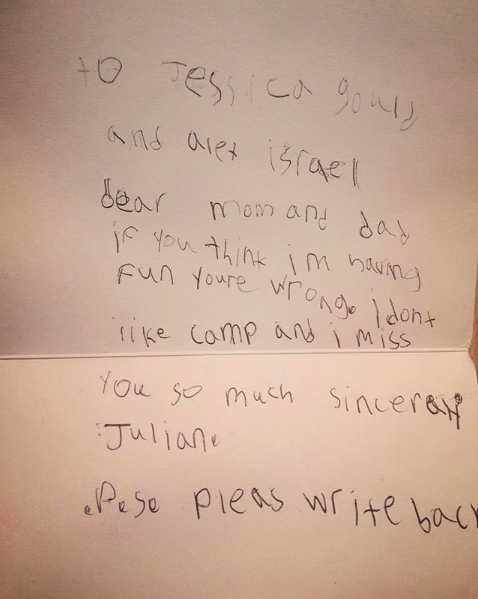 to Jessica gould
and alex israel
dear mom and dad
if you think im having
fun youre wrong. I dont
like camp and i miss
You so much sinceraly
Julian.
.P.s. pleas write back